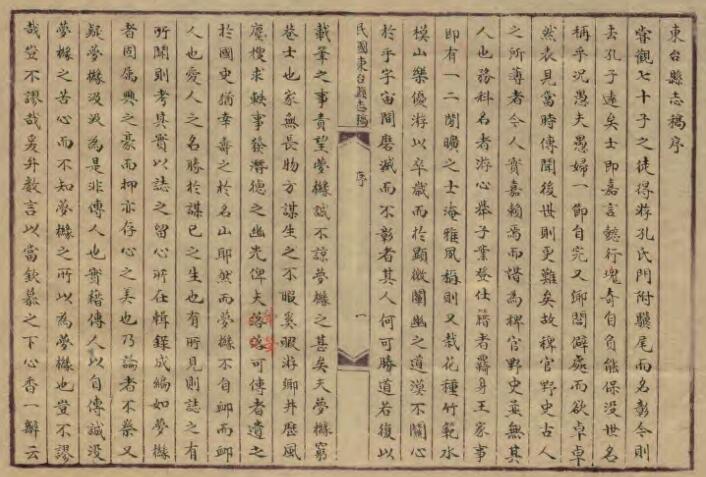 東台縣志稿序
嘗觀七十子之徒得游孔氏門附驥尾而名彰今則
去孔子遠矣士即嘉言懿行瑰奇自負能保没世名
稱乎況愚夫愚婦一節自完又鄉閭僻處而欲卓卓
然表見當時傳聞後世則更難矣故稗官野史古人
之所薄者今人實嘉賴焉而謂為稗官野史莫無其
人也務科名者游心舉子業登仕籍者羈身王家事
即有一二閒曠之士淹雅風稱則又栽花種竹範水
模山樂優游以卒歲而於顯微闡幽之道漠不關心
於乎宇宙間磨滅而不彰者其人何可勝道若復以
民國東台縣志稿
序
一
載筆之事責望夢樵誠不諒夢樵之甚矣夫夢樵窮
巷士也家無長物方謀生之不暇奚暇游鄉井歷風
塵搜求軼事發潛德之幽光俾夫落落可傳者遺之
於國史猶幸壽之於名山耶然而夢樵不自卹而卹
人也愛人之名勝於謀己之生也有所見則誌之有
所聞則考其實以誌之留心所在輯錄成編如夢樵
者固屬興之豪而抑亦存心之美也乃論者不察又
疑夢樵汲汲為是非傳人也實藉傳人以自傳誠没
夢樵之苦心而不知夢樵之所以為夢樵也豈不謬
哉豈不謬哉爰升數言以當欽慕之下心香一瓣云